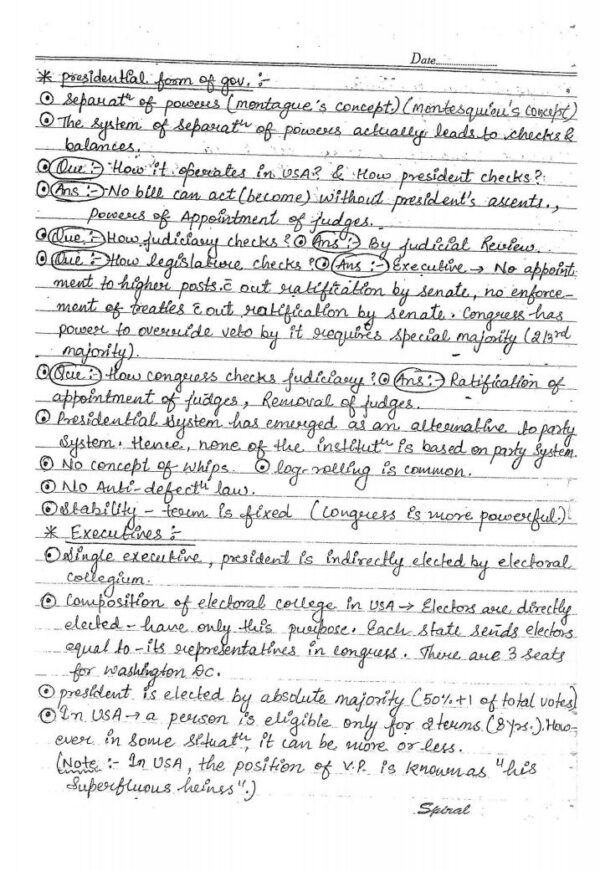 Date
* presidential form of gov. :-
⊙ Separatⁿ of powers (montague's concept) (Montesquieu's concept)
⊙ The system of separatⁿ of powers actually leads to checks &
balances.
⊙ Que :- How it operates in USA? & How president checks?
⊙ Ans :- No bill can act (become) without president's ascents.,
Powers of Appointment of judges.
⊙ Que :- How judiciary checks? ⊙ Ans :- By Judicial Review.
⊙ Que :- How legislature checks? ⊙ Ans :- Executive → No appoint-
ment to higher posts c̄ out ratification by senate, no enforce-
ment of treaties c̄ out ratification by senate. Congress has
power to override veto by it requires special majority (2/3rd
majority).
⊙ Que :- How congress checks judiciary? ⊙ Ans :- Ratification of
appointment of judges, Removal of judges.
⊙ Presidential system has emerged as an alternative to party
system. Hence, none of the institutⁿ is based on party system.
⊙ No concept of whips. ⊙ log-rolling is common.
⊙ No Anti-defectⁿ law.
⊙ Stability - term is fixed (congress is more powerful).
* Executives :-
⊙ Single executive, president is indirectly elected by electoral
collegium.
⊙ Composition of electoral college in USA → Electors are directly
elected - have only this purpose. Each state sends electors
equal to - its representatives in congress. There are 3 seats
for Washington DC.
⊙ president is elected by absolute majority (50%+1 of total votes)
⊙ In USA → a person is eligible only for 2 terms (8 yrs.). How-
ever in some situatⁿ, it can be more or less.
(Note :- In USA, the position of V.P. is known as "his
Superfluous heinss".)
Spiral